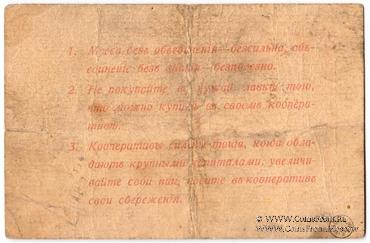 1. Масса безъ объединенія—безсильна, объ-
единеніе безъ знанія—безполезно.
2. Не покупайте въ чужой лавкѣ того,
что можно купить въ своемъ коопера-
тивѣ.
3. Кооперативы сильны тогда, когда обла-
даютъ крупными капиталами, увеличи-
вайте свои паи, несите въ кооперативъ
свои сбереженія.
www.CoinsFair.ru
CoinsFromMoscow